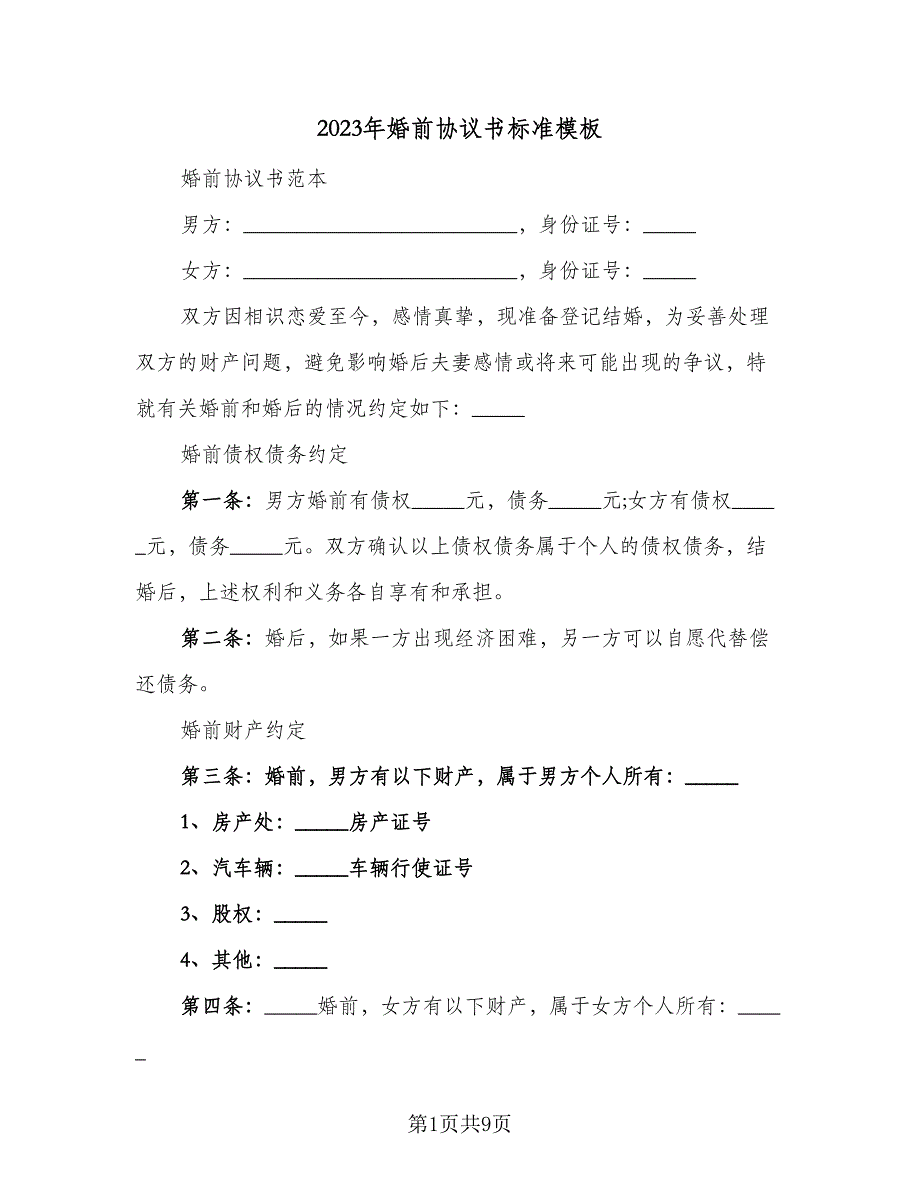 2023年婚前协议书标准模板
婚前协议书范本
男方：__________________________，身份证号：_____
女方：__________________________，身份证号：_____
双方因相识恋爱至今，感情真挚，现准备登记结婚，为妥善处理
双方的财产问题，避免影响婚后夫妻感情或将来可能出现的争议，特
就有关婚前和婚后的情况约定如下：_____
婚前债权债务约定
第一条：男方婚前有债权_____元，债务_____元;女方有债权____
_元，债务_____元。双方确认以上债权债务属于个人的债权债务，结
婚后，上述权利和义务各自享有和承担。
第二条：婚后，如果一方出现经济困难，另一方可以自愿代替偿
还债务。
婚前财产约定
第三条：婚前，男方有以下财产，属于男方个人所有：_____
1、房产处：_____房产证号
2、汽车辆：_____车辆行使证号
3、股权：_____
4、其他：_____
第四条：_____婚前，女方有以下财产，属于女方个人所有：____
_
第1页共9页